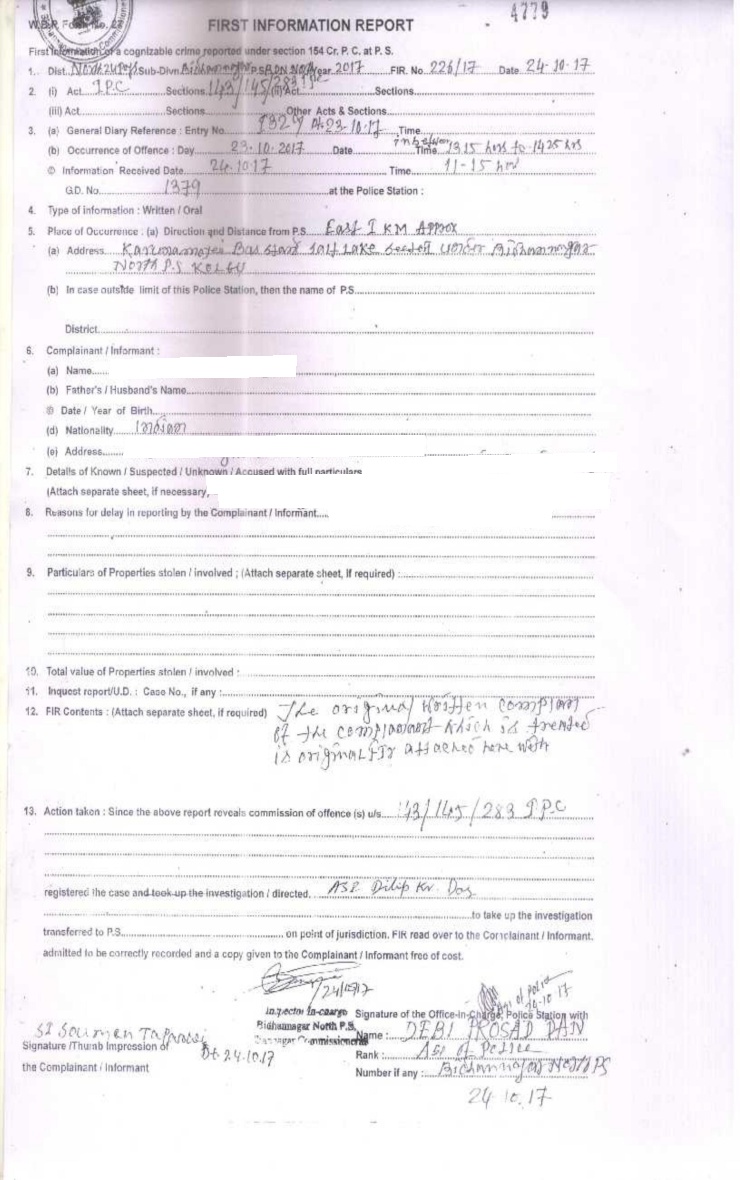 4779
W.B.P. Form No. 27
FIRST INFORMATION REPORT
First Information of a cognizable crime reported under section 154 Cr. P. C. at P. S.
1. Dist. North 24 Pgs Sub-Divn. Bidhannagar P.S. BDN North Year 2017 FIR. No. 226/17 Date 24-10-17
2. (i) Act I.P.C Sections 143/145/283 IPC (ii) Act Sections
(iii) Act Sections Other Acts & Sections
3. (a) General Diary Reference : Entry No. Dt-23-10-17 Time
(b) Occurrence of Offence : Day 23-10-2017 Date Time in between 1315 hrs to 1425 hrs
© Information Received Date 24-10-17 Time 11-15 hrs
G.D. No. 1379 at the Police Station :
4. Type of information : Written / Oral
5. Place of Occurrence : (a) Direction and Distance from P.S. East 1 KM Approx
(a) Address Karunamoyee Bus stand Salt Lake Sector II under Bidhannagar
North P.S. Kol-64
(b) In case outside limit of this Police Station, then the name of P.S.
District
6. Complainant / Informant :
(a) Name
(b) Father's / Husband's Name
© Date / Year of Birth
(d) Nationality Indian
(e) Address
7. Details of Known / Suspected / Unknown / Accused with full particulars
(Attach separate sheet, if necessary,
8. Reasons for delay in reporting by the Complainant / Informant
9. Particulars of Properties stolen / involved ; (Attach separate sheet, if required) :
10. Total value of Properties stolen / involved :
11. Inquest report/U.D. : Case No., if any :
12. FIR Contents : (Attach separate sheet, if required) The original written complaint
of the complainant which is treated
is original FIR attached here with
13. Action taken : Since the above report reveals commission of offence (s) u/s 143/145/283 I.P.C
registered the case and took up the investigation / directed ASI Dilip Kr. Das
to take up the investigation
transferred to P.S. on point of jurisdiction. FIR read over to the Complainant / Informant.
admitted to be correctly recorded and a copy given to the Complainant / Informant free of cost.
24/10/17
ASI of Police
24-10-17
Inspector in-charge
Bidhannagar North P.S.
Bidhannagar Commissionerate
Signature of the Office-in-Charge, Police Station with
Name : DEBI PROSAD PAN
Rank : ASI of Police
Number if any : Bidhannagar North PS
24-10-17
SI Soumen
Dt. 24.10.17
Signature /Thumb Impression of
the Complainant / Informant